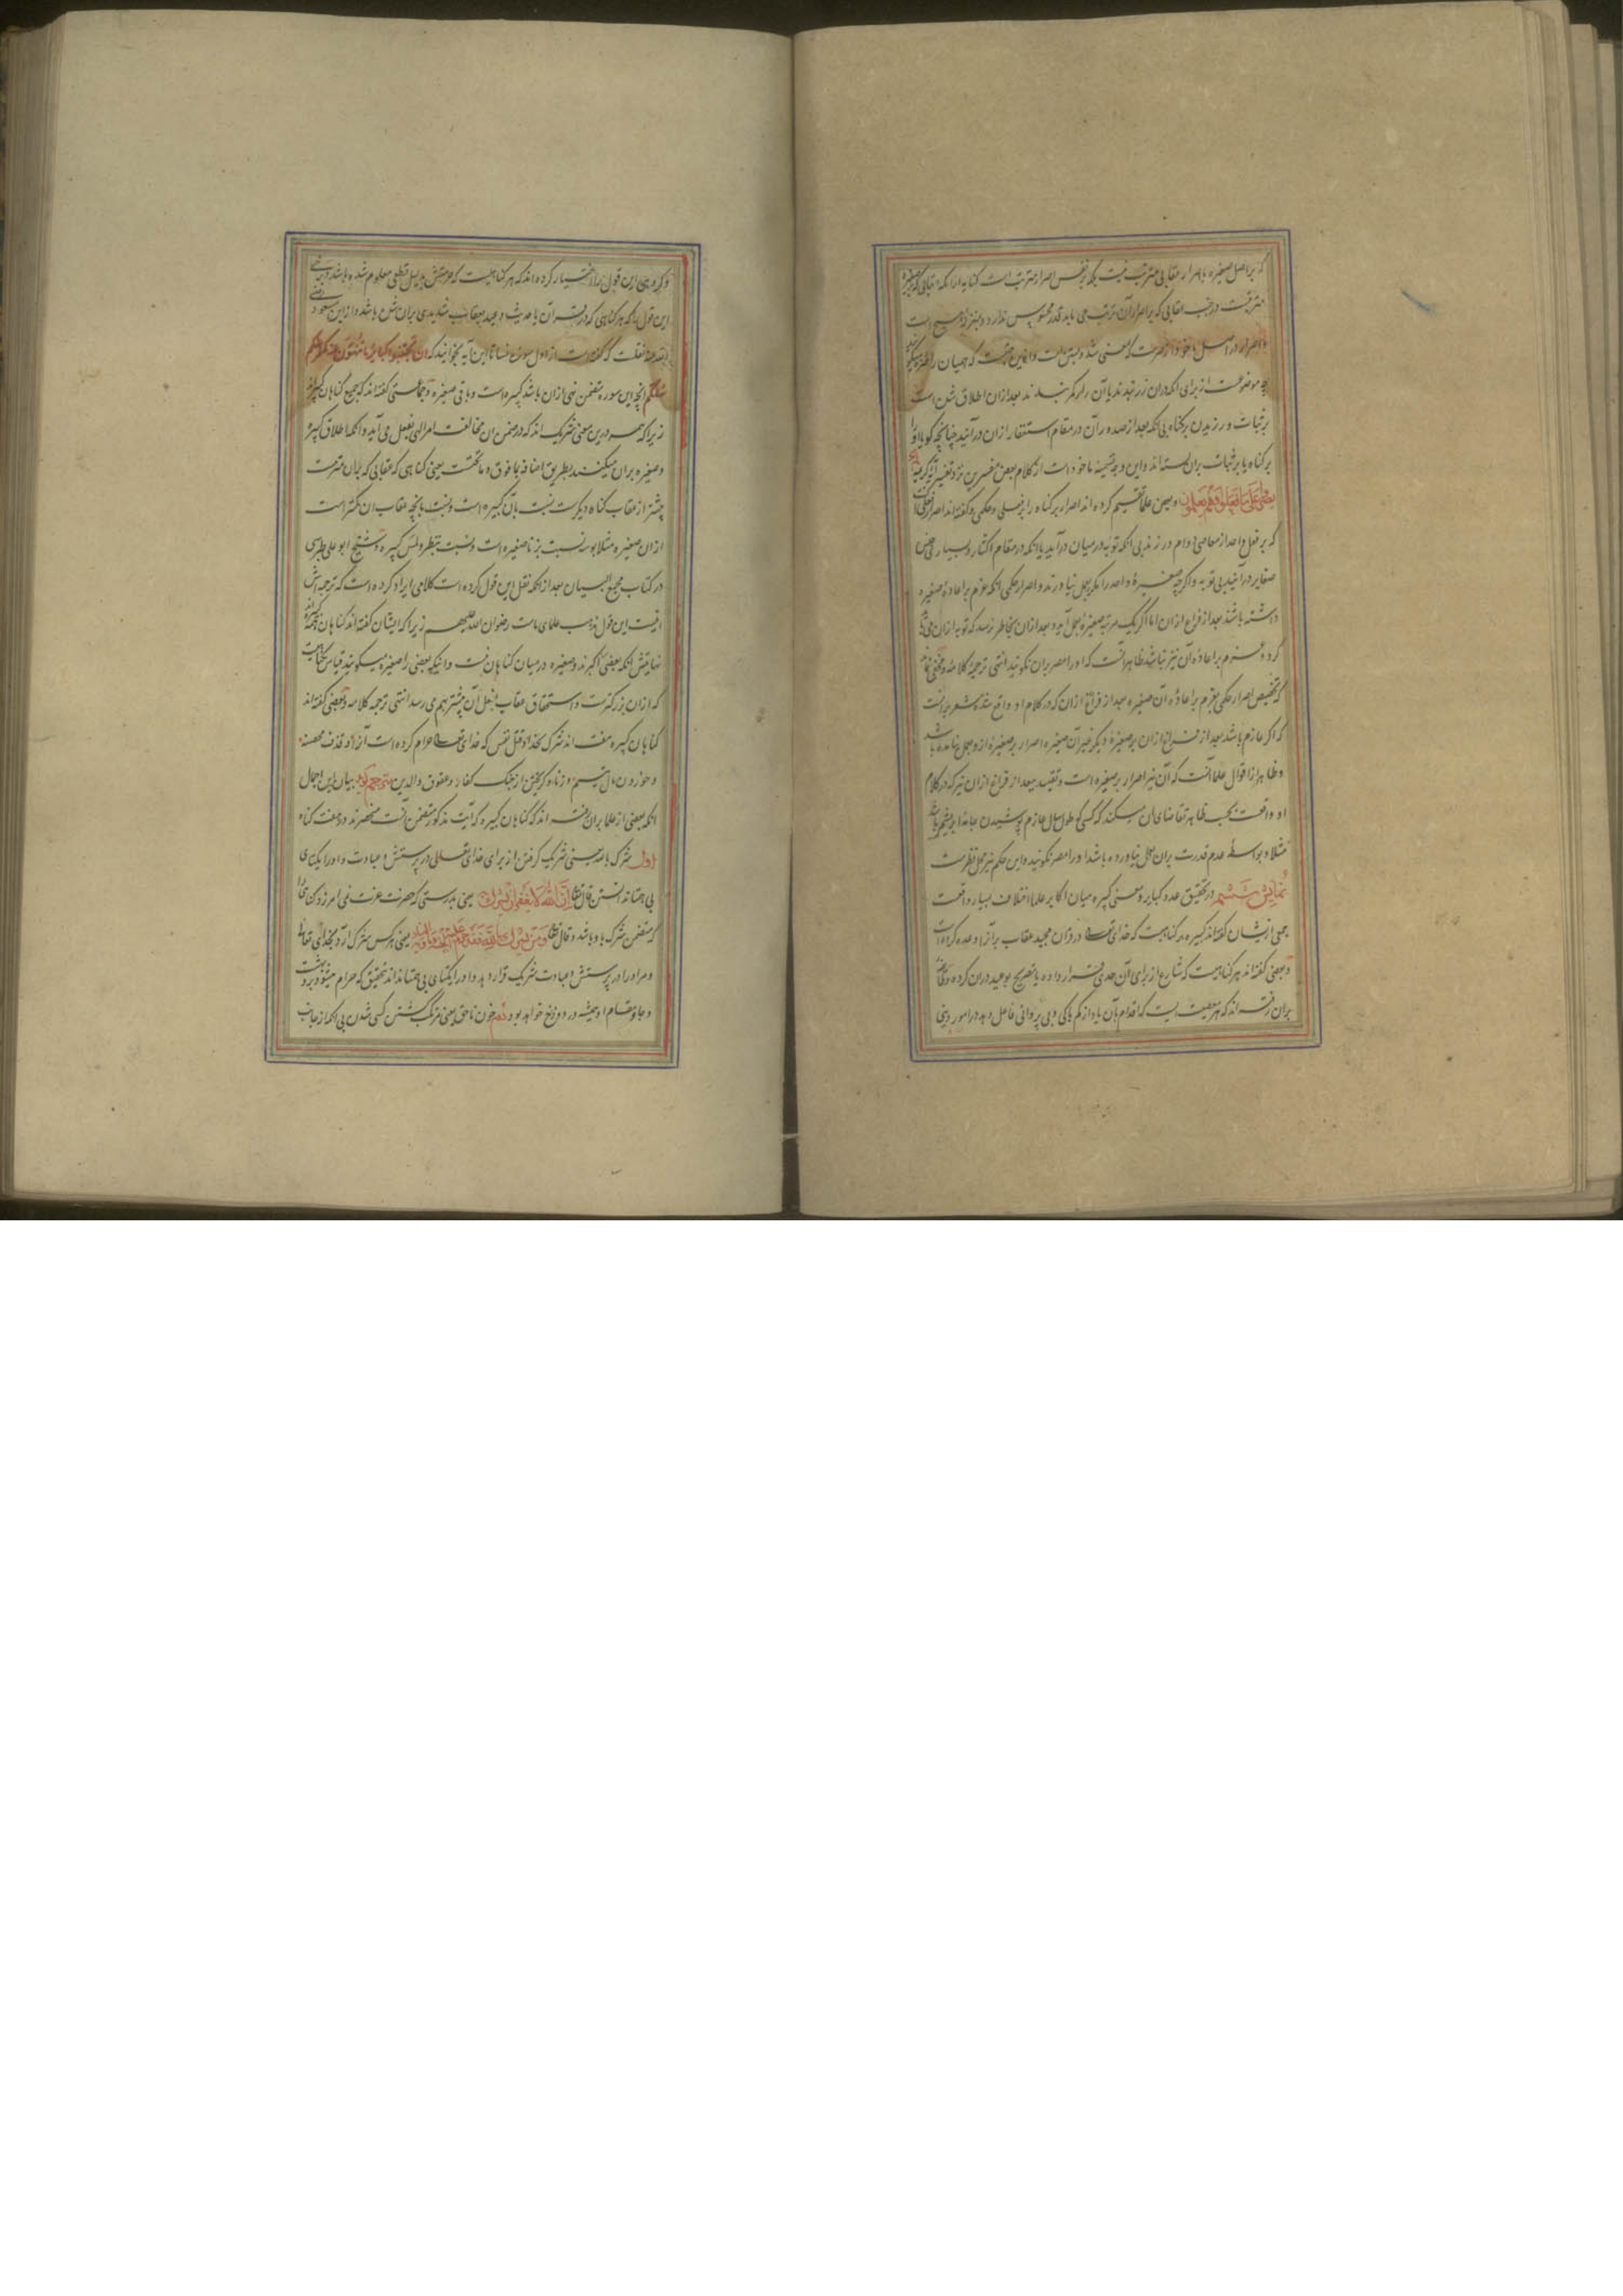 که بر اصل صغیره با اصرار عقابی مترتب نیست بلکه بر نفس اصرار مترتبست کنایه از آنکه عقابی که بر صغیره
مترتبست در جنب عقابی که بر اصرار آن ترتب می یابد قدر محسوس ندارد و بمنزله هیچ است
و اصرار در اصل ماخوذ از صرست که بمعنی شد و بستن است و ازین جهت که همیان را صره میگویند
چه موضوعست از برای انکه دران زر نهند و با آن را بر کمر بندند بعد ازان اطلاق شد
بر ثبات ورزیدن بر گناه بی انکه بعد از صدور آن در مقام استغفار ازان در آیند چنانچه گویا او را
بر گناه یا بر ثبات بران بسته اند و این وجه تسمیه ماخوذ است از کلام بعض مفسرین نزد تفسیر آیه کریمه
یصروا علی ما فعلوا و هم یعلمون و بعض علما تقسیم کرده اند اصرار بر گناه را بفعلی و حکمی و گفته اند اصرار فعلی آنست
که بر فعل واحد از معاصی دوام ورزند بی انکه توبه در میان درآید یا انکه در مقام اکثار و بسیاری جنس
صغایر درآیند بی توبه و اگرچه صغیره واحد را مکرر بعمل نیاورند و اصرار حکمی انکه عزم بر اعاده صغیره
داشته باشند بعد از فراغ ازان اما اگر یک مرتبه صغیره بعمل آید و بعد ازان بخاطر نرسد که توبه ازان می باید
کرد و عزم بر اعاده آن نیز نباشد ظاهر آنست که او را مصر بران نگویند انتهی ترجمه کلامه و مخفی نماند
که تخصیص اصرار حکمی بعزم بر اعاده آن صغیره بعد از فراغ ازان که در کلام او واقع شده مشعر بر آنست
که اگر عازم باشد بعد از فراغ ازان بر صغیره دیگر غیر آن صغیره اصرار بر صغیره ازو بعمل نیامده باشد
و ظاهر از اقوال علما آنست که آن نیز اصرار بر صغیره است و تقیید ببعد از فراغ ازان نیز که در کلام
او واقعست بحسب ظاهر تقاضای ان میکند که کسی که طول سال عازم پوشیدن جامه ابریشم باشد
مثلا و بواسطه عدم قدرت بران بعمل نیاورده باشد او را مصر نگویند و این حکم نیز محل نظرست
نمایش ششم در تحقیق عدد کبایر و معنی کبیره میان اکابر علما اختلاف بسیار واقعست
جمعی ازیشان گفته اند کبیره هر گناهیست که خدای تعالی در قران مجید عقاب بر آن وعده کرده است
و بعضی گفته اند هر گناهیست که شارع از برای آن حدی قرار داده یا تصریح بوعید دران کرده و طایفه
بران رفته اند که هر معصیت است که اقدام بآن یاد از کم باکی و بی پروائی فاعل دهد در امور دینی
و گروهی این قول را اختیار کرده اند که هر گناهیست که حرمتش بدلیل قطعی معلوم شده باشد و برخی
این قول را که هر گناهی که در قرآن یا حدیث وعید بعقاب شدیدی بران شده باشد و از ابن مسعود رضی
الله عنه نقلست که گفته است از اول سوره نسا تا این آیه بخوانید که ان تجتنبوا کبائر ما تنهون عنه نکفر عنکم
سیئاتکم انچه این سوره متضمن نهی ازان باشد کبیره است و باقی صغیره و جماعتی گفته اند که جمیع گناهان کبیره اند
زیرا که همه درین معنی شریک اند که در ضمن ان مخالفت امر الهی بفعل می آید و انکه اطلاق کبیره
و صغیره بران میکنند بطریق اضافه بما فوق و ما تحتست یعنی گناهی که عقابی که بران مترتبست
بیشتر از عقاب گناه دیگرست نسبت بآن کبیره است و نسبت بانچه عقاب ان بیشترست
ازان صغیره مثلا بوسه نسبت بزنا صغیره است و نسبت بنظر و لمس کبیره و شیخ ابو علی طبرسی
در کتاب مجمع البیان بعد از انکه نقل این قول کرده است کلامی ایراد کرده است که ترجمه اش
اینست این قول مذهب علمای ماست رضوان الله علیهم زیرا که ایشان گفته اند گناهان همه کبیره اند
نهایتش انکه بعضی اکبرند و صغیره در میان گناهان نیست و انیکه بعضی را صغیره میگویند بقیاس گناهیست
که ازان بزرگترست و استحقاق عقاب بفعل آن بیشتر بهم می رسد انتهی ترجمه کلامه و بعضی گفته اند
گناهان کبیره هفت اند شرک بخدا و قتل نفس که خدای تعالی حرام کرده است آنرا و قذف محصنه
و خوردن مال یتیم و زنا و گریختن از جنگ کفار و عقوق والدین مترجم گوید بیان این اجمال
انکه بعضی از علما بران رفته اند که گناهان کبیره که آیت مذکور متضمن آنست منحصرند در هفت گناه
اول شرک بالله یعنی شریک گرفتن از برای خدای تعالی در پرستش و عبادت و او را یکتای
بی همتا ندانستن قال تعالی ان الله لا یغفر ان یشرک به یعنی بدرستی که حضرت عزت نمی آمرزد گناهی را
که متضمن شرک باو باشد و قال تعالی و من یشرک بالله فقد حرم الله علیه الجنة و ماواه النار یعنی هر کس شرک آرد بخدای تعالی
و مر او را در پرستش و عبادت شریک قرار دهد و او را یکتای بی همتا نداند تحقیق که حرام میشود برو بهشت
و جا و مقام او همیشه در دوزخ خواهد بود دوم خون ناحق یعنی مرتکب کشتن کسی شدن بی انکه از جانب